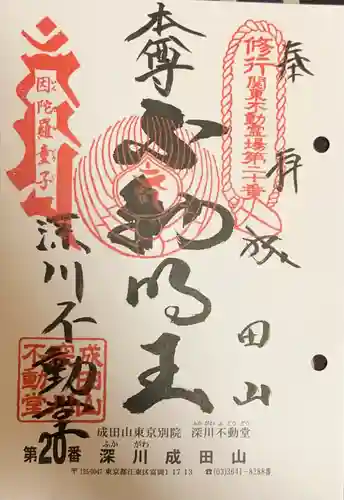 奉拝
成田山
修行 関東不動霊場第二十番
本尊
不動明王
因陀羅童子
深川不動堂
成田山
不動堂
成田山東京別院 深川不動堂
第20番 深川成田山
〒135-0047 東京都江東区富岡1 17 13 ☎(03)3641-8288番